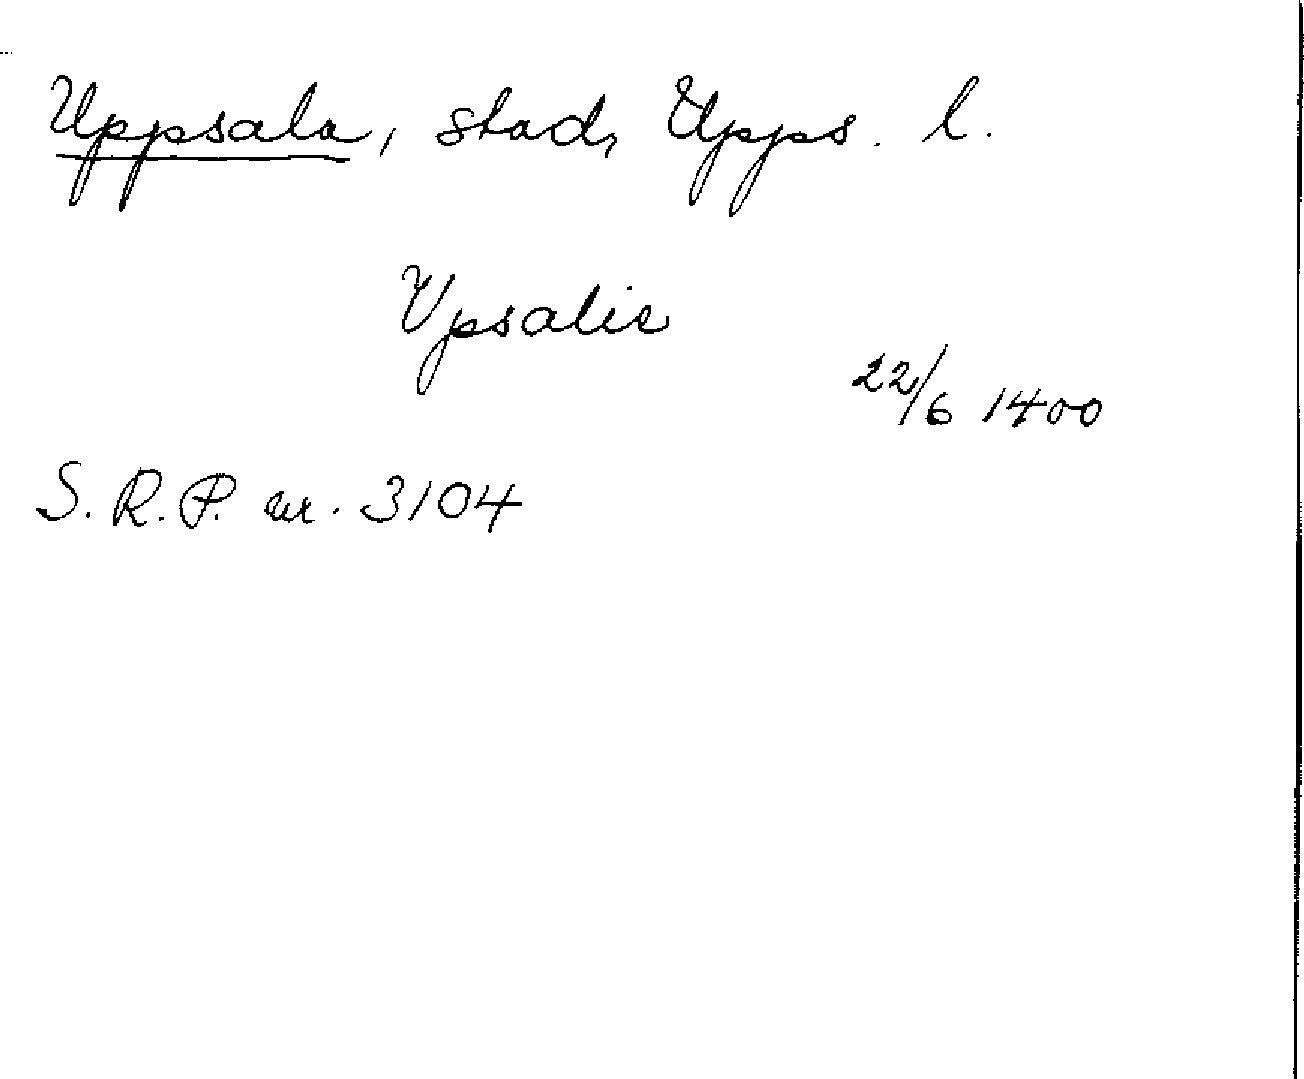 Uppsala, stad, Upps. l.
Vpsalie
22/6 1400
S. R. P. nr. 3104